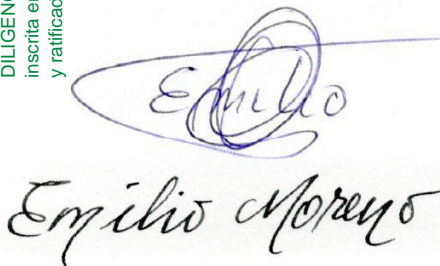 DILIGENC
inscrita en
y ratificad
Emilio
Emilio Moreno